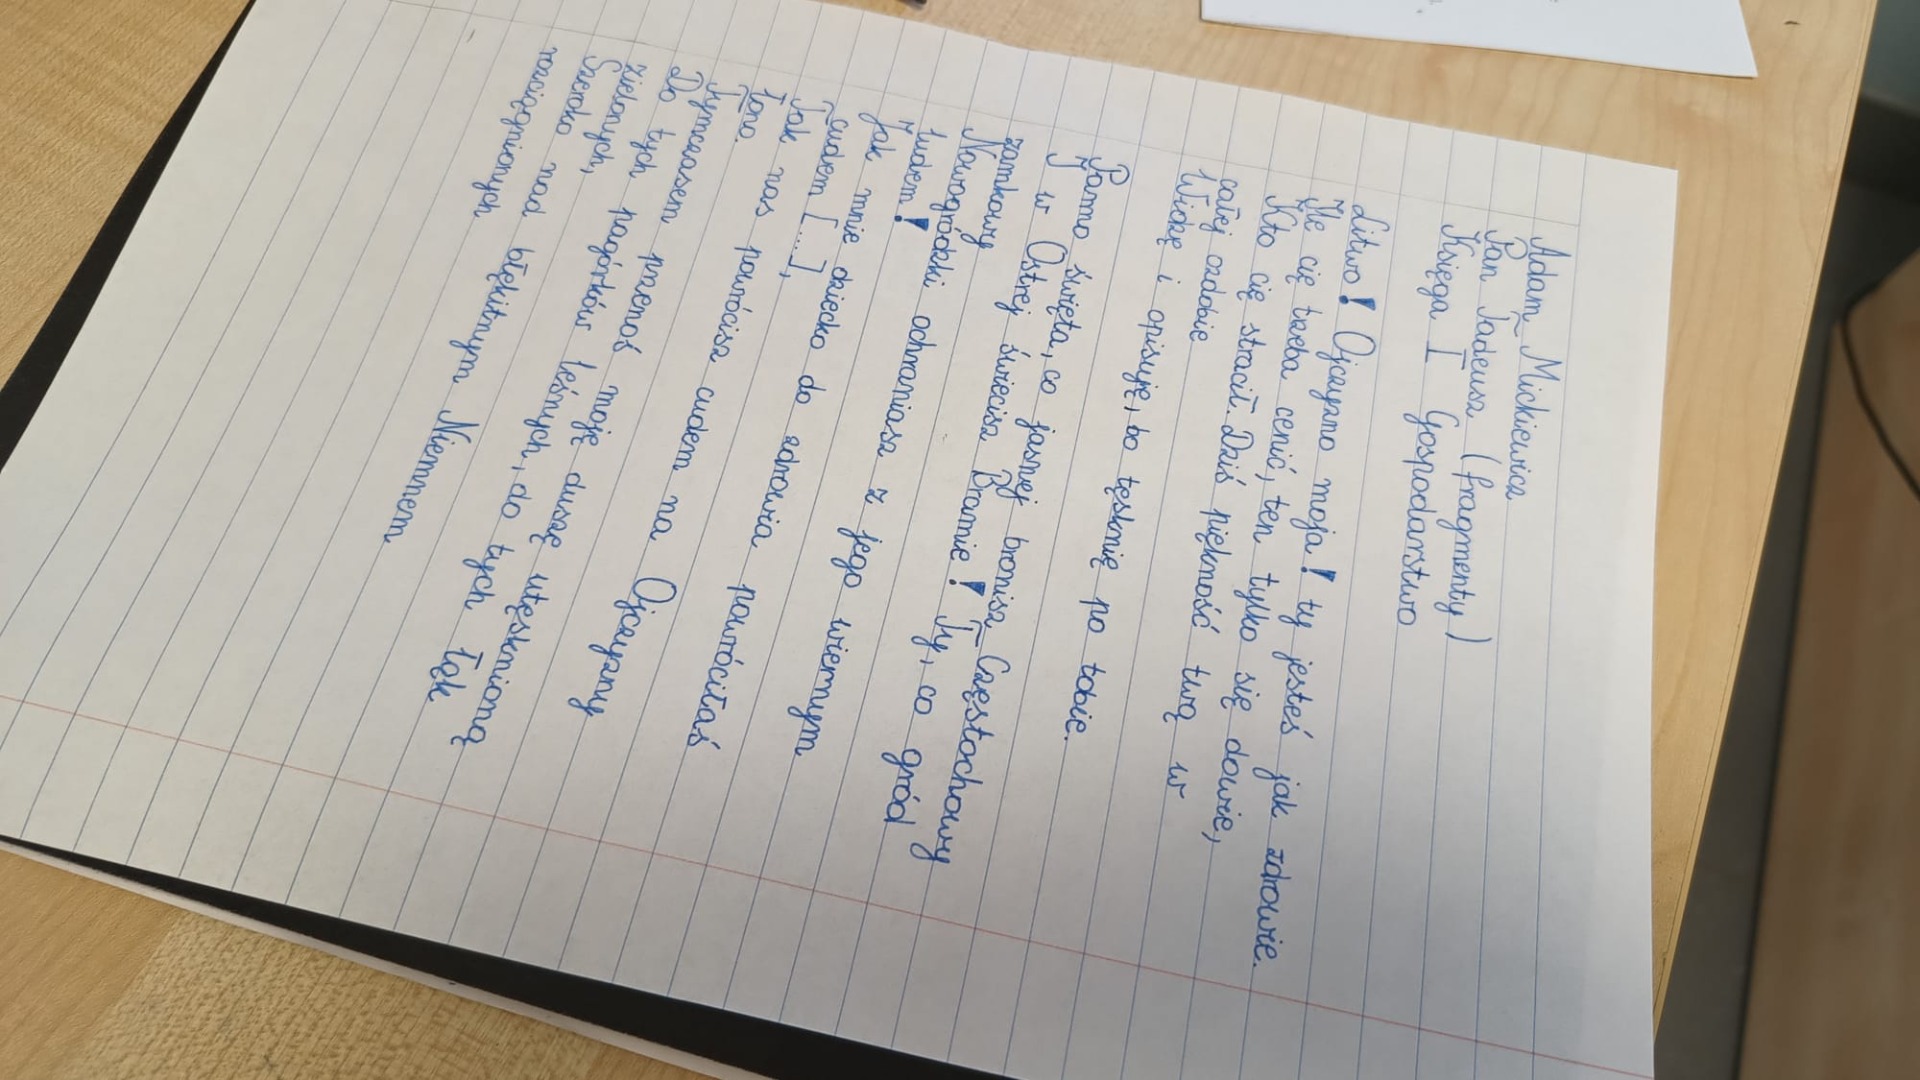 Adam Mickiewicz
Pan Tadeusz (fragmenty)
Księga I Gospodarstwo
Litwo! Ojczyzno moja! ty jesteś jak zdrowie.
Ile cię trzeba cenić, ten tylko się dowie,
Kto cię stracił. Dziś piękność twą w
całej ozdobie
Widzę i opisuję, bo tęsknię po tobie.
Panno święta, co jasnej bronisz Częstochowy
I w Ostrej świecisz Bramie! Ty, co gród
zamkowy
Nowogródzki ochraniasz z jego wiernym
ludem!
Jak mnie dziecko do zdrowia powróciłaś
cudem [...],
Tak nas powrócisz cudem na Ojczyzny
łono.
Tymczasem przenoś moję duszę utęsknioną
Do tych pagórków leśnych, do tych łąk
zielonych,
Szeroko nad błękitnym Niemnem
rozciągnionych